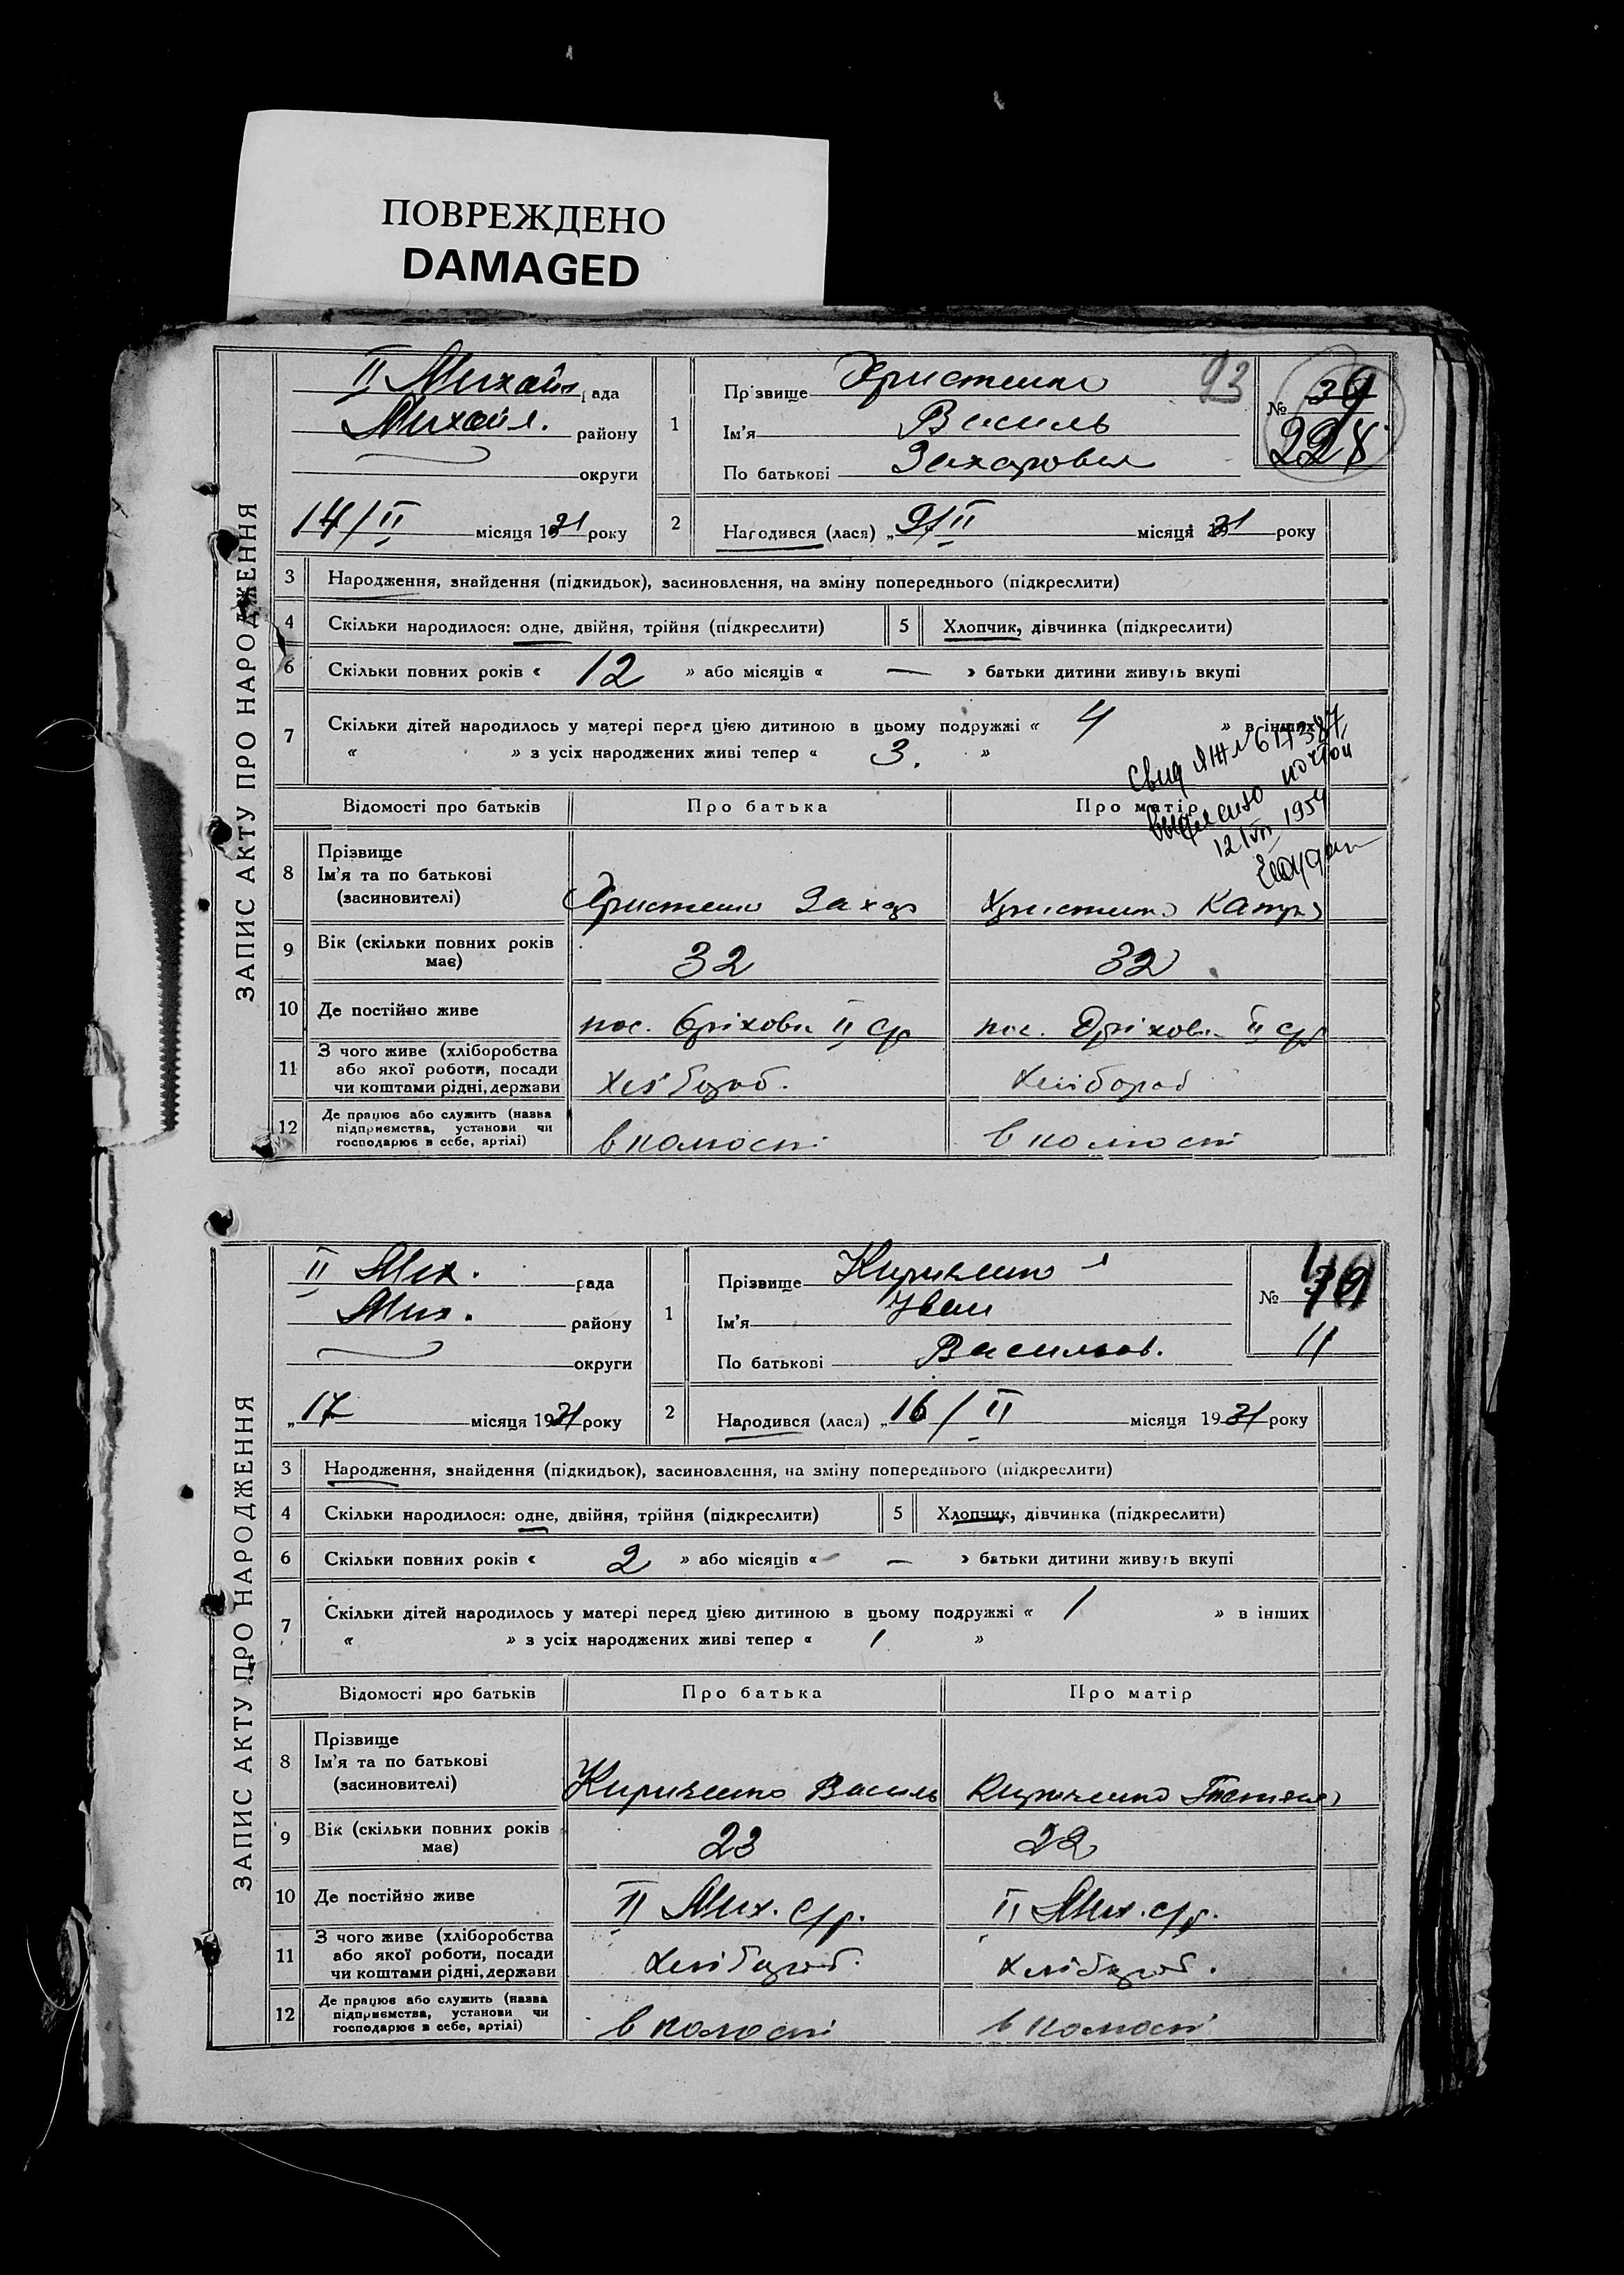 ПОВРЕЖДЕНО
DAMAGED
ЗАПИС АКТУ ПРО НАРОДЖЕННЯ
II Михайл. рада
Михайл. району
округи
14/II місяця 1931 року
1
Прізвище Христенко
93
Ім'я Василь
По батькові Захарович
№ 39
228
2 Народився (лася) „9/II місяця 1931 року
3 Народження, знайдення (підкидьок), засиновлення, на зміну попереднього (підкреслити)
4 Скільки народилося: одне, двійня, трійня (підкреслити)
5 Хлопчик, дівчинка (підкреслити)
6 Скільки повних років « 12 » або місяців « — » батьки дитини живуть вкупі
7 Скільки дітей народилось у матері перед цією дитиною в цьому подружжі « 4 » в інших
« » з усіх народжених живі тепер « 3. »
Свид ЯЖ № 617387
выслано почтой
12/VII 1954
Відомості про батьків Про батька Про матір
8 Прізвище
Ім'я та по батькові
(засиновителі)
Христенко Захар Христенко Катря
9 Вік (скільки повних років
має)
32 32
10 Де постійно живе
пос. Оріхова II Ср пос. Оріхова II Ср
11 З чого живе (хліборобства
або якої роботи, посади
чи коштами рідні, держави
хлібороб. хлібороб
12 Де працює або служить (назва
підприємства, установи чи
господарює в себе, артілі)
в колгоспі в колгоспі
ЗАПИС АКТУ ПРО НАРОДЖЕННЯ
II Мих. рада
Мих. району
округи
„17 місяця 1931 року
1
Прізвище Кириченко
Ім'я Іван
По батькові Васильов.
№
11
2 Народився (лася) „16/II місяця 1931 року
3 Народження, знайдення (підкидьок), засиновлення, на зміну попереднього (підкреслити)
4 Скільки народилося: одне, двійня, трійня (підкреслити)
5 Хлопчик, дівчинка (підкреслити)
6 Скільки повних років « 2 » або місяців « — » батьки дитини живуть вкупі
7 Скільки дітей народилось у матері перед цією дитиною в цьому подружжі « 1 » в інших
« » з усіх народжених живі тепер « 1 »
Відомості про батьків Про батька Про матір
8 Прізвище
Ім'я та по батькові
(засиновителі)
Кириченко Василь Кириченко Тетяна
9 Вік (скільки повних років
має)
23 22
10 Де постійно живе
II Мих. Ср. II Мих. Ср.
11 З чого живе (хліборобства
або якої роботи, посади
чи коштами рідні, держави
хлібороб. хлібороб.
12 Де працює або служить (назва
підприємства, установи чи
господарює в себе, артілі)
в колгоспі в колгоспі